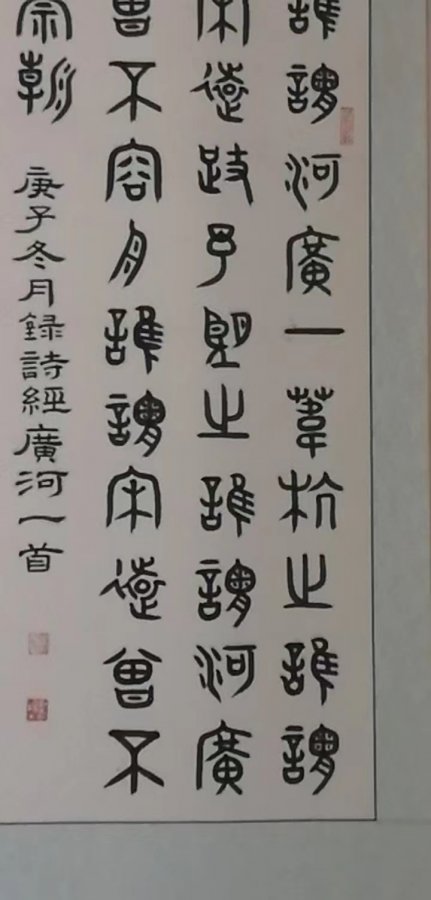 誰謂河廣一葦杭之誰謂
宋遠跂予朢之誰謂河廣
曾不容舟誰謂宋遠曾不
崇朝
庚子冬月録詩經廣河一首